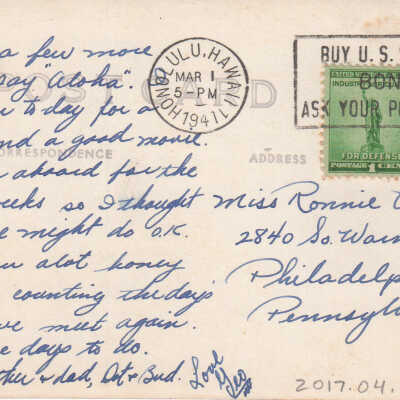 a few more
say Aloha".
POST CARD
to day for a
and a good movie.
CORRESPONDENCE
aboard for the
weeks so I thought
might do O.K.
alot honey
counting the days
we meet again.
days to do.
& dad, Dot & Bud.
Love
Geo
HONOLULU, HAWAII
MAR 1
5 - PM
1941
BUY U.S.
ASK YOUR
UNITED STATES
INDUSTRY
FOR DEFENSE
POSTAGE 1 CENT
ADDRESS
Miss Ronnie
2840 So.
Philadelp
Pennsyl
2017.04.